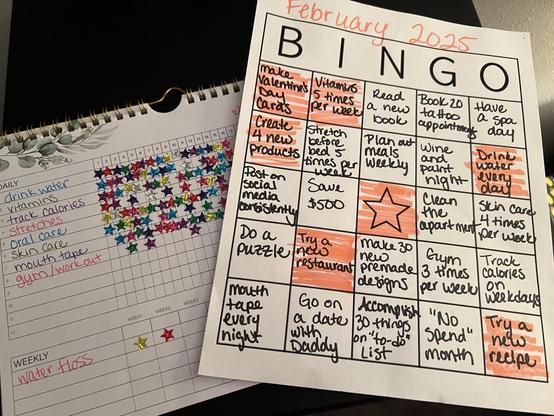 February 2025
BINGO
make
Valentine's
Day
Cards
Vitamins
5 times
per week
Read
a new
book
Book 20
tattoo
appointments
Have
a spa
day
Create
4 new
products
Stretch
before
bed 5
times per
week
Plan out
meals
weekly
Wine
and
paint
night
Drink
water
every
day
Post on
social
media
consistently
Save
$500
Clean
the
apartment
Skin care
4 times
per week
Do a
puzzle
Try a
new
restaurant
Make 30
new
premade
designs
Gym
3 times
per week
Track
calories
on
weekdays
mouth
tape
every
night
Go on
a date
with
Daddy
Accomplish
30 things
on "to-do"
List
"No
Spend"
month
Try a
new
recipe
DAILY
drink water
vitamins
track calories
stretches
oral care
skin care
mouth tape
gym/workout
WEEKLY
WEEK 1
WEEK 2
WEEK 3
water floss